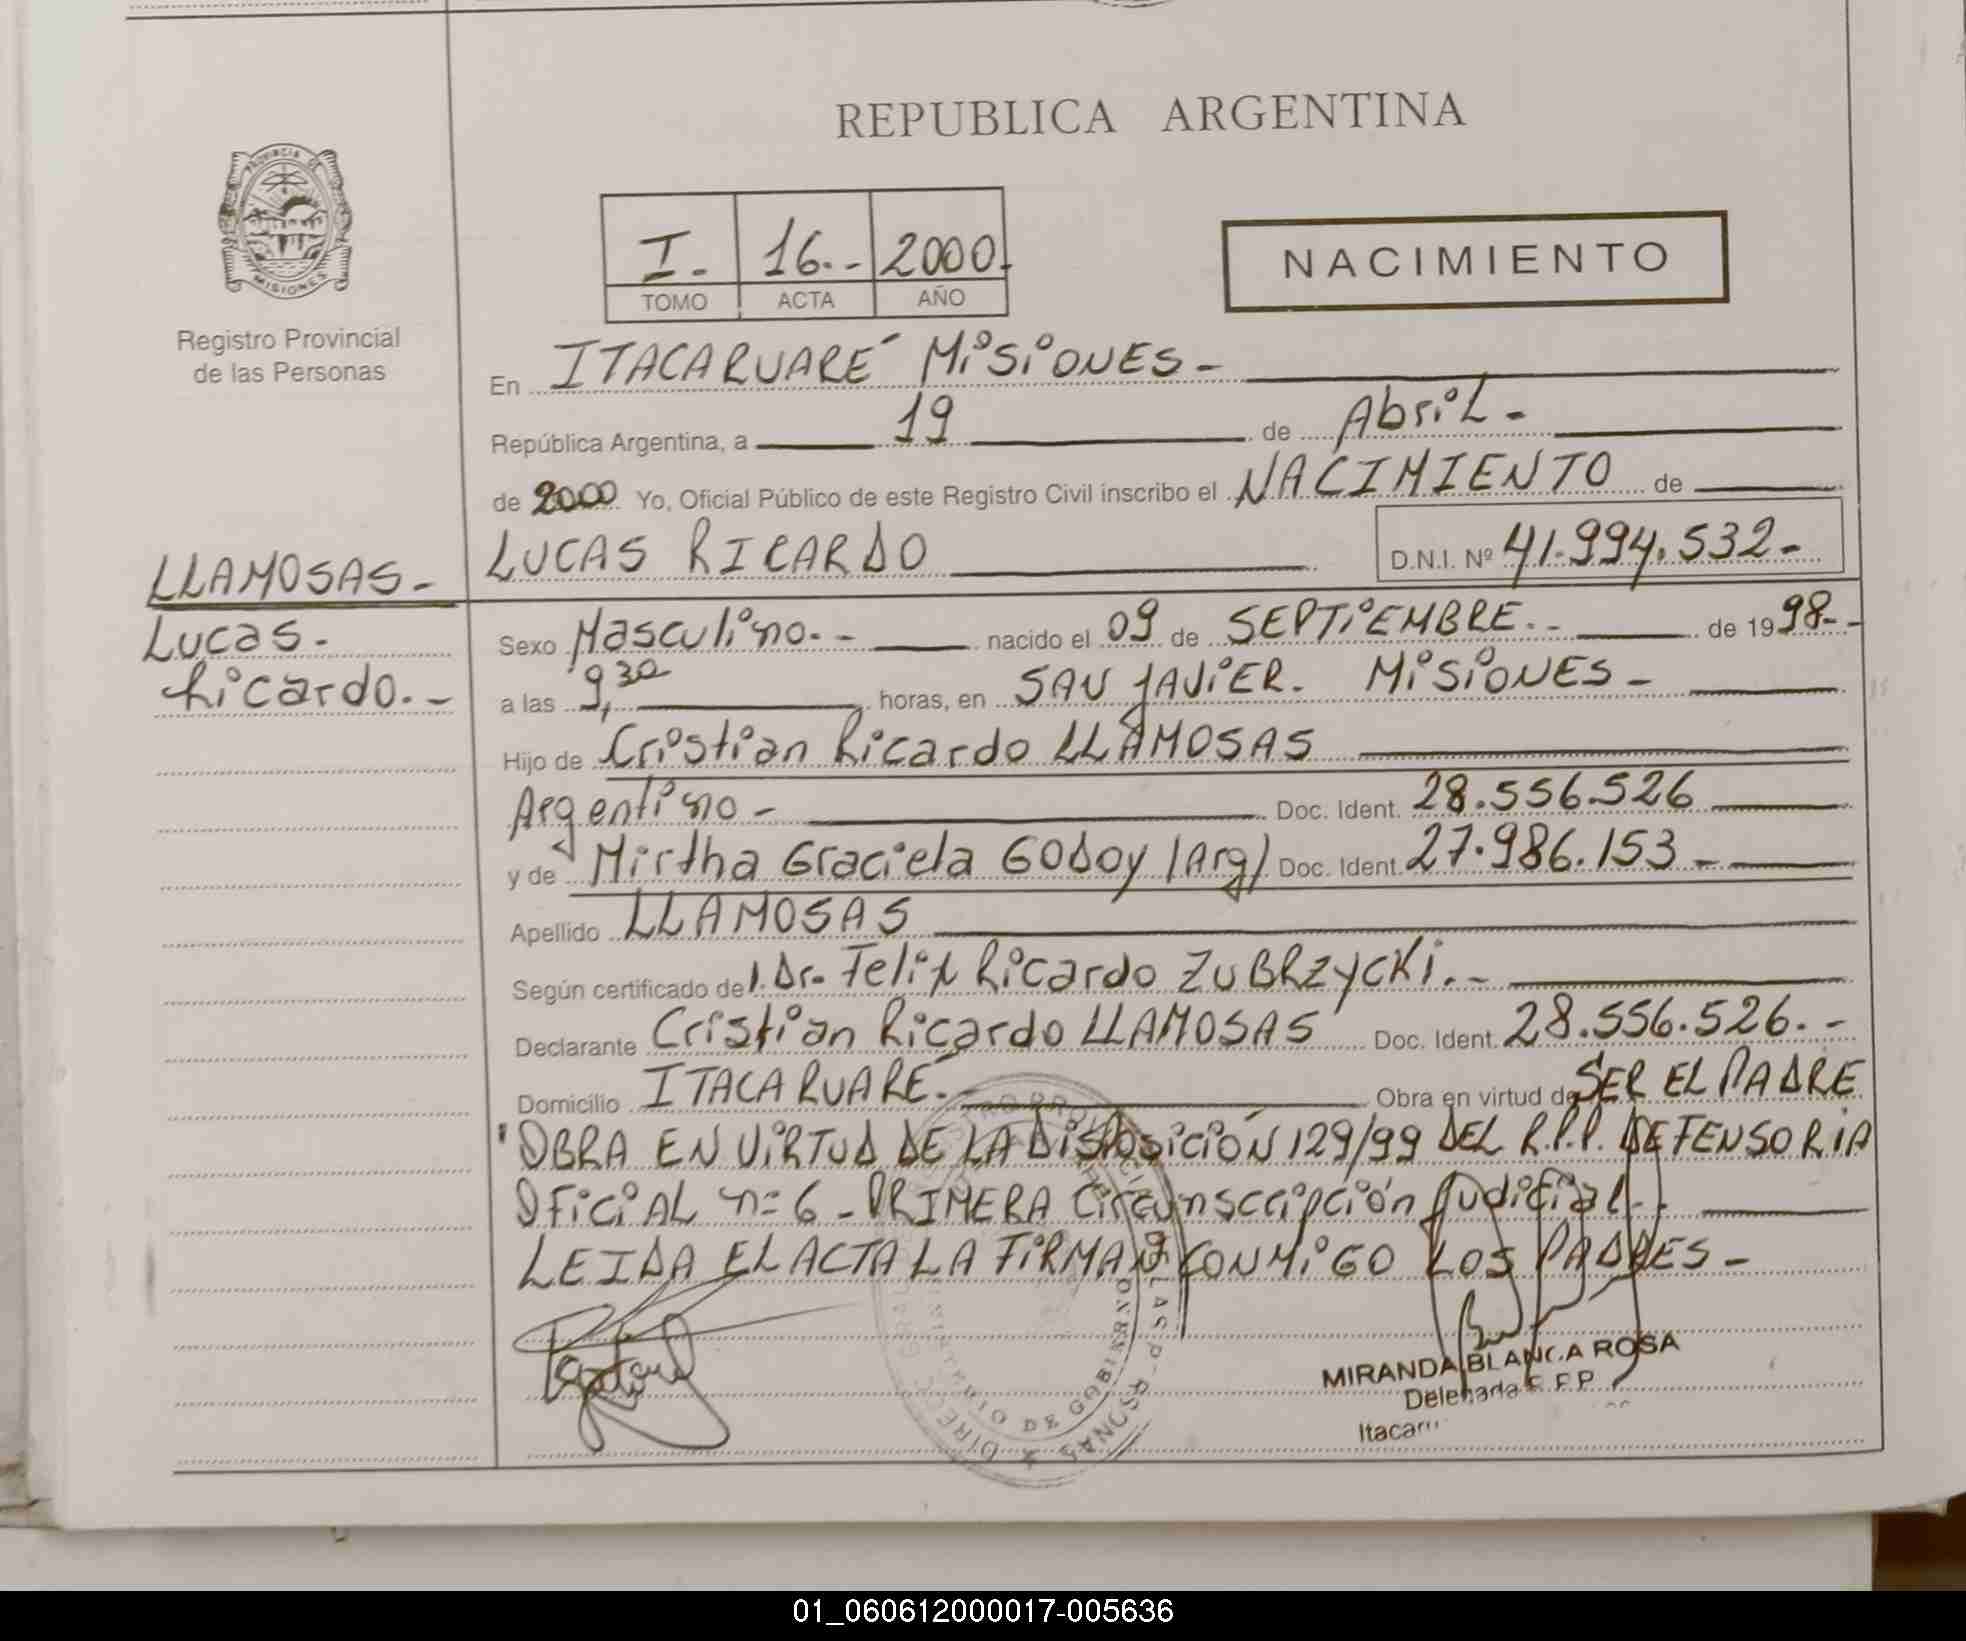 REPUBLICA ARGENTINA
PROVINCIA DE
MISIONES
Registro Provincial
de las Personas
I. 16.- 2000
TOMO ACTA AÑO
NACIMIENTO
En ITACARUARE´ MISIONES -
República Argentina, a 19 de Abril -
de 2000 Yo, Oficial Público de este Registro Civil inscribo el NACIMIENTO de
LLAMOSAS -
LUCAS RICARDO D.N.I. Nº 41.994.532 -
Lucas -
Ricardo. -
Sexo Masculino. - nacido el 09 de SEPTIEMBRE. - de 1998 - -
a las 9,30 horas, en SAN JAVIER. MISIONES -
Hijo de Cristian Ricardo LLAMOSAS
Argentino - Doc. Ident. 28.556.526
y de Mirtha Graciela GODOY (Arg) Doc. Ident. 27.986.153 -
Apellido LLAMOSAS
Según certificado del. Dr. Felix Ricardo ZUBRZYCKI. -
Declarante Cristian Ricardo LLAMOSAS Doc. Ident. 28.556.526. -
Domicilio ITACARUARE´. Obra en virtud de SER EL PADRE
OBRA EN VIRTUD DE LA DISPOSICIÓN 129/99 DEL R.P.P. DEFENSORIA
OFICIAL n= 6 - PRIMERA Circunscripción Judicial -
LEIDA EL ACTA LA FIRMAN CONMIGO LOS PADRES -
MINISTERIO DE GOBIERNO
MIRANDA BLANCA ROSA
01_060612000017-005636